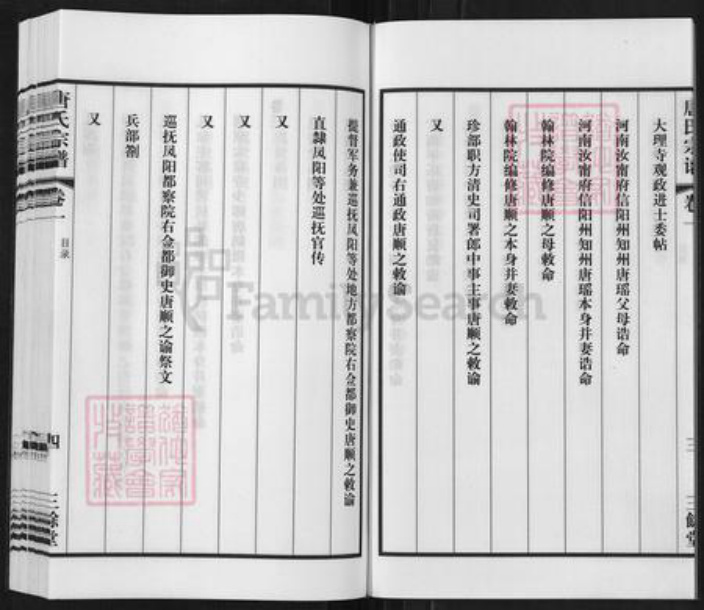 大理寺观政进士委帖
河南汝甯府信阳州知州唐瑶父母诰命
河南汝甯府信阳州知州唐瑶本身并妻诰命
翰林院编修唐顺之母敕命
翰林院编修唐顺之本身并妻敕命
珍部职方清史司署郎中事主事唐顺之敕谕
又
通政使司右通政唐顺之敕谕
三
三餘堂
提督军务兼巡抚凤阳等处地方都察院右佥都御史唐顺之敕谕
直隸凤阳等处巡抚官传
又
又
又
巡抚凤阳都察院右佥都御史唐顺之谕祭文
兵部劄
又
唐氏宗谱 卷一
目录
四
三餘堂
FamilySearch